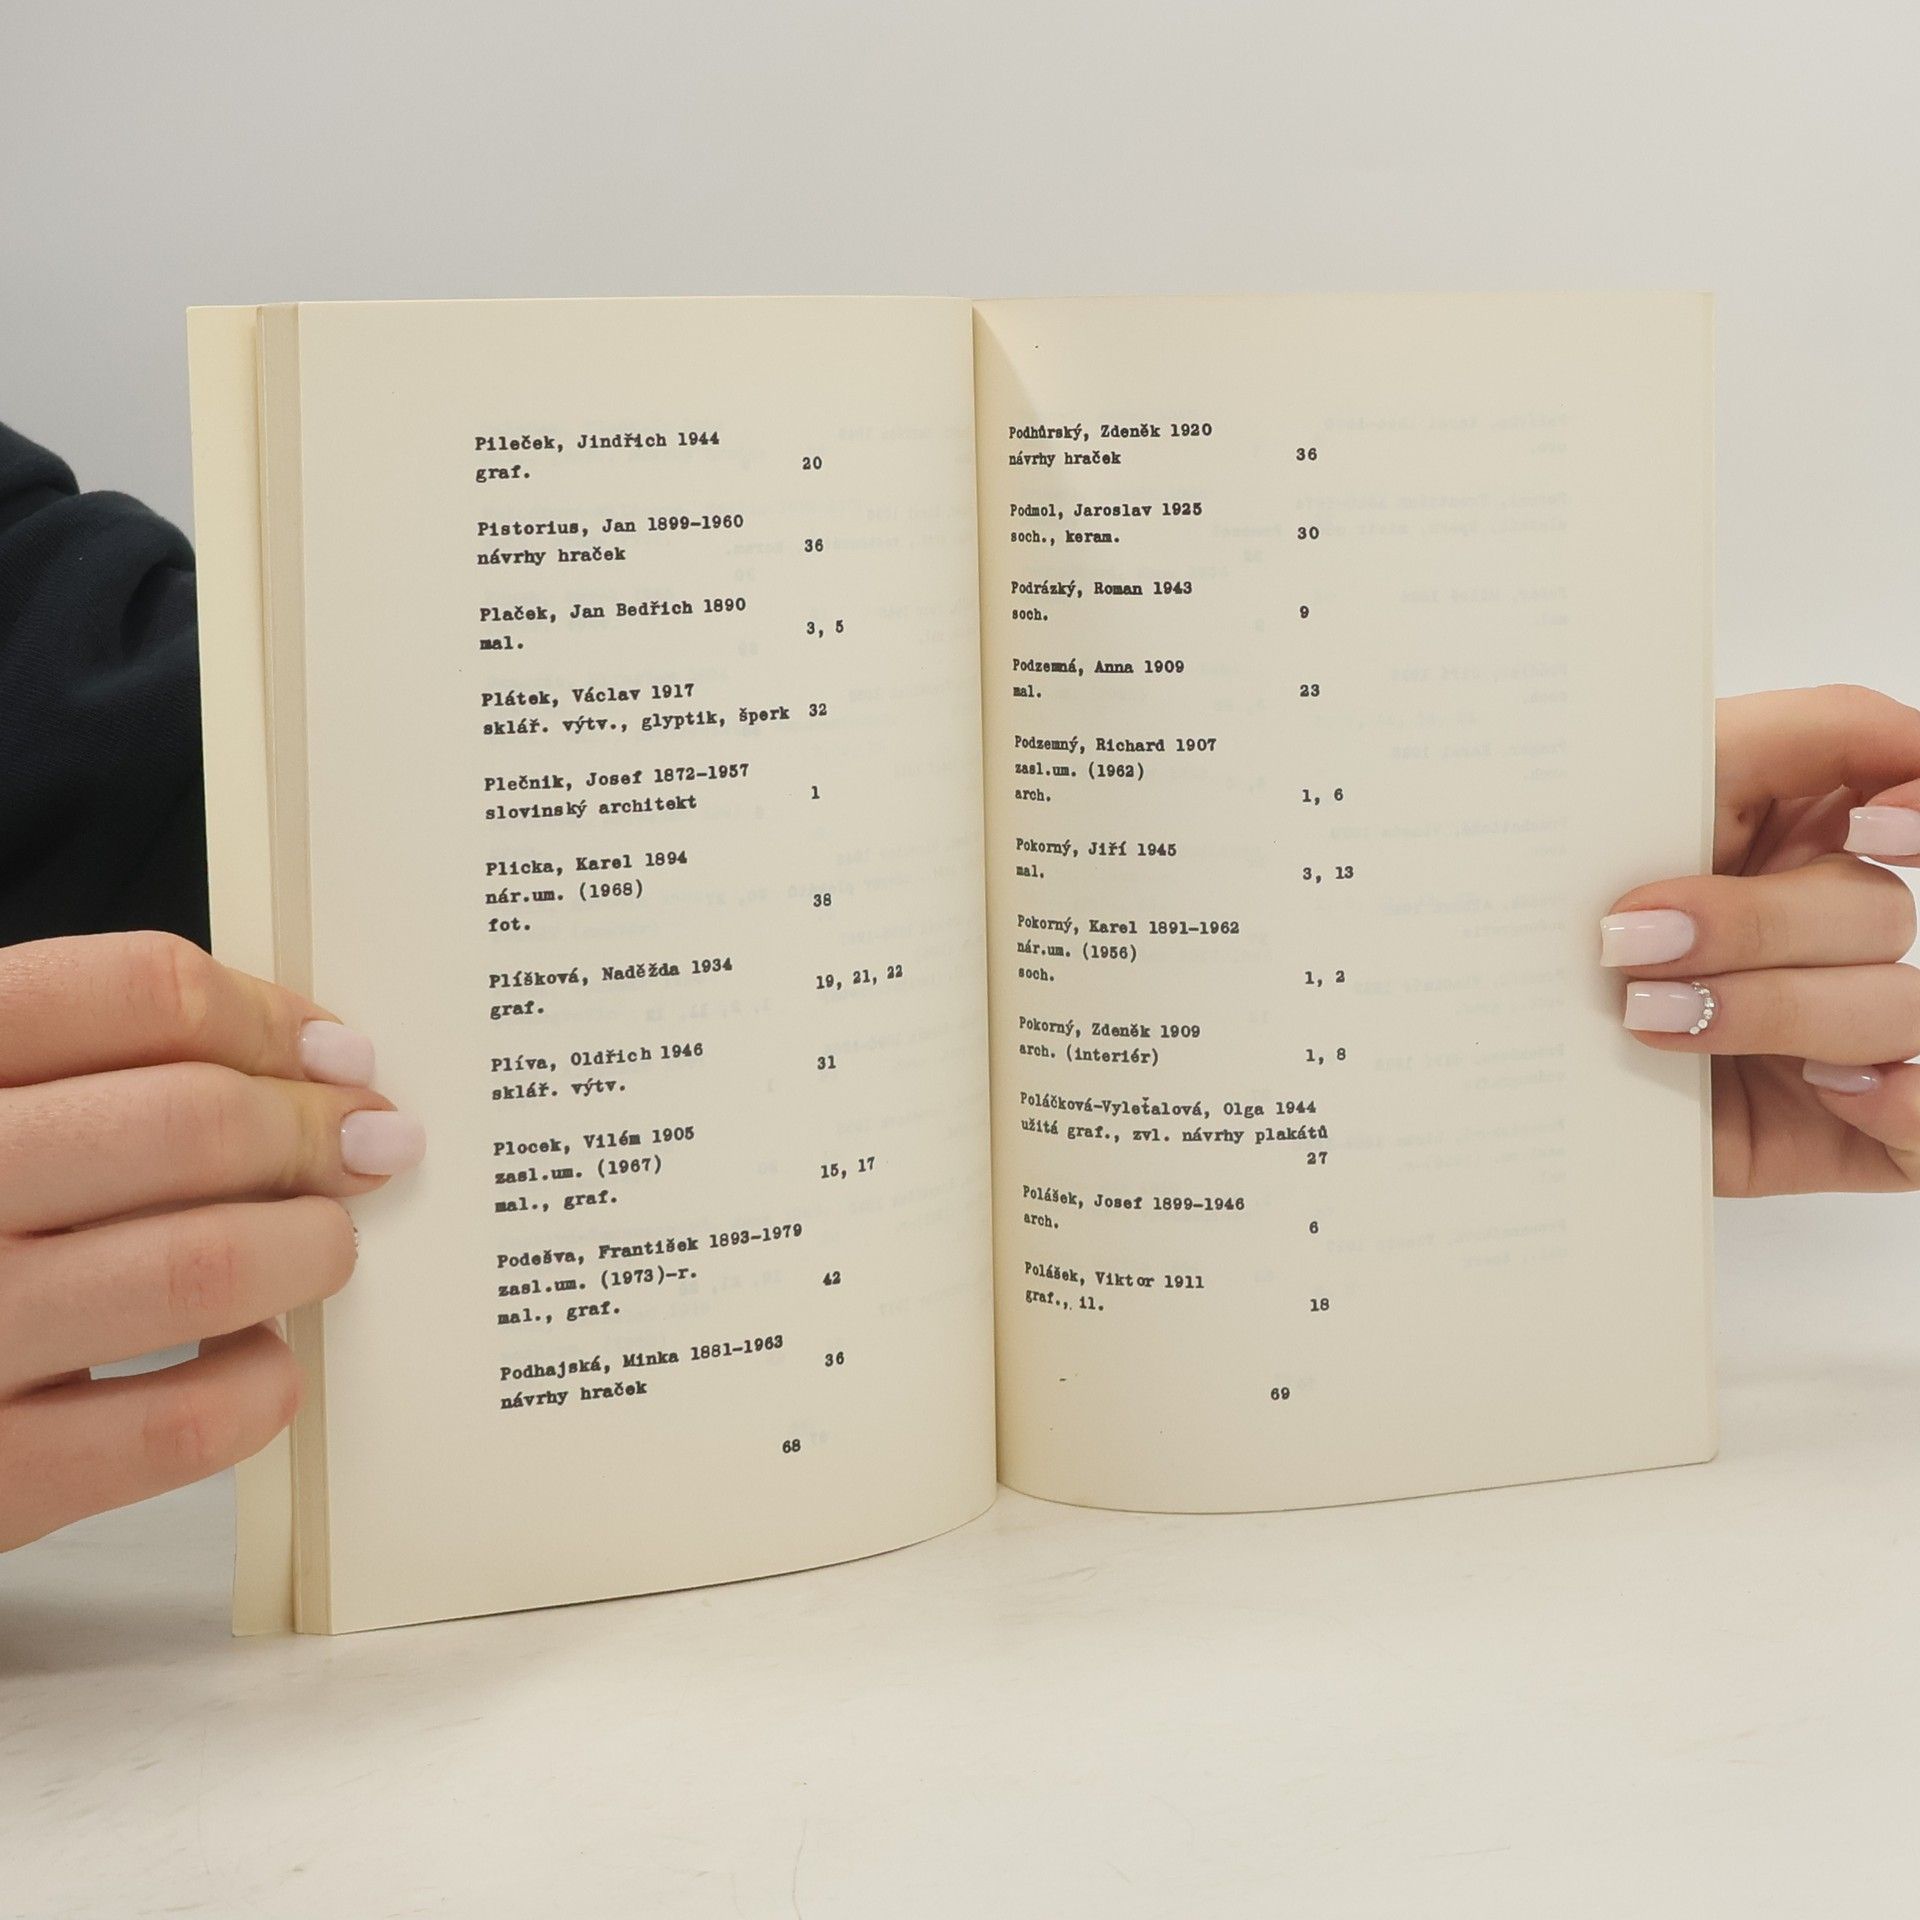 Pileček, Jindřich 1944
graf. 20
Pistorius, Jan 1899-1960
návrhy hraček 36
Plaček, Jan Bedřich 1890
mal. 3, 5
Plátek, Václav 1917
sklář. výtv., glyptik, šperk 32
Plečnik, Josef 1872-1957
slovinský architekt 1
Plicka, Karel 1894
nár.um. (1968)
fot. 38
Plíšková, Naděžda 1934
graf. 19, 21, 22
Plíva, Oldřich 1946
sklář. výtv. 31
Plocek, Vilém 1905
zasl.um. (1967)
mal., graf. 15, 17
Podešva, František 1893-1979
zasl.um. (1973)-r.
mal., graf. 42
Podhajská, Minka 1881-1963
návrhy hraček 36
68
Podhůrský, Zdeněk 1920
návrhy hraček 36
Podmol, Jaroslav 1925
soch., keram. 30
Podrázký, Roman 1943
soch. 9
Podzemná, Anna 1909
mal. 23
Podzemný, Richard 1907
zasl.um. (1962)
arch. 1, 6
Pokorný, Jiří 1945
mal. 3, 13
Pokorný, Karel 1891-1962
nár.um. (1956)
soch. 1, 2
Pokorný, Zdeněk 1909
arch. (interiér) 1, 8
Poláčková-Vyleťalová, Olga 1944
užitá graf., zvl. návrhy plakátů
27
Polášek, Josef 1899-1946
arch. 6
Polášek, Viktor 1911
graf., il. 18
69